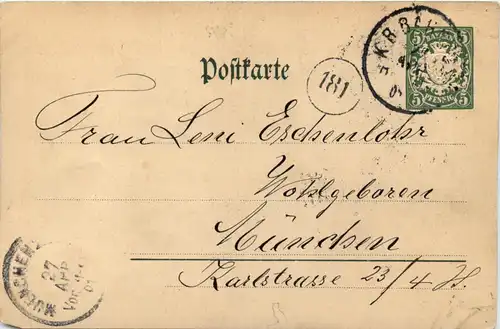 Postkarte
K.B. BAH
181
BAYERN
5 5
5 PFENNIG 5
Frau Leni Eschenlohr
Wohlgeboren
München
Karlstrasse 23/4 H.
MUENCHEN
27
APR
Vor